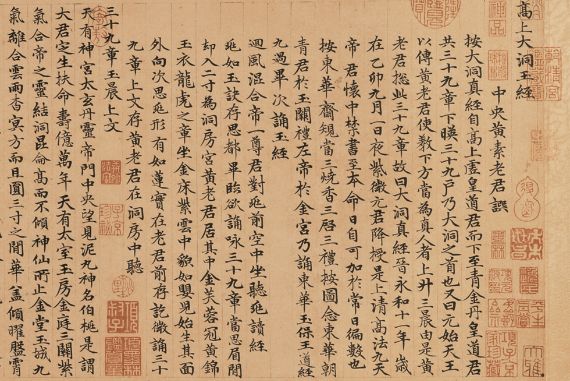 高上大洞玉經
中央黃素老君譔
按大洞真經自高上虛皇道君而下至青金丹皇道君
共三十九章下暎三十九戶乃大洞之首也又曰元始天王
以傳黃老君使教下方當為真人者上升三晨由是黃
老君總此三十九章故曰大洞真經晉永和十一年歲
在乙卯九月一日夜紫微元君降授是上清高法九天
帝君懷中禁書至本命日自可加於常日徧數也
按東華齋規當三燒香三啓三禮按圖念東華朝
青君於玉闕禮左帝於金宮乃誦東華玉保王道經
九過畢次誦玉經
迴風混合帝一尊君對兆前空中坐聽兆讀經
兆如玉訣存思都畢臨欲誦詠三十九章當思眉間
却入二寸為洞房宮黃老君居其中金芙蓉冠黃錦
玉衣龍虎之章坐金床紫雲中貌如嬰兒始生其面
外向次思兆形有如蓮實在老君前存訖微誦三十
九章上文存黃老君在洞房中聽
三十九章玉晨上文
天有神宮太玄丹靈帝門中央望見泥丸神名伯極是謂
大君定生扶命壽億萬年天有太室玉房金庭三關紫
氣合帝之靈結洞昆侖高而不傾神仙所止金堂玉城九
氣離合雲雨杳冥方而且圓三寸之間華蓋傾曜霄